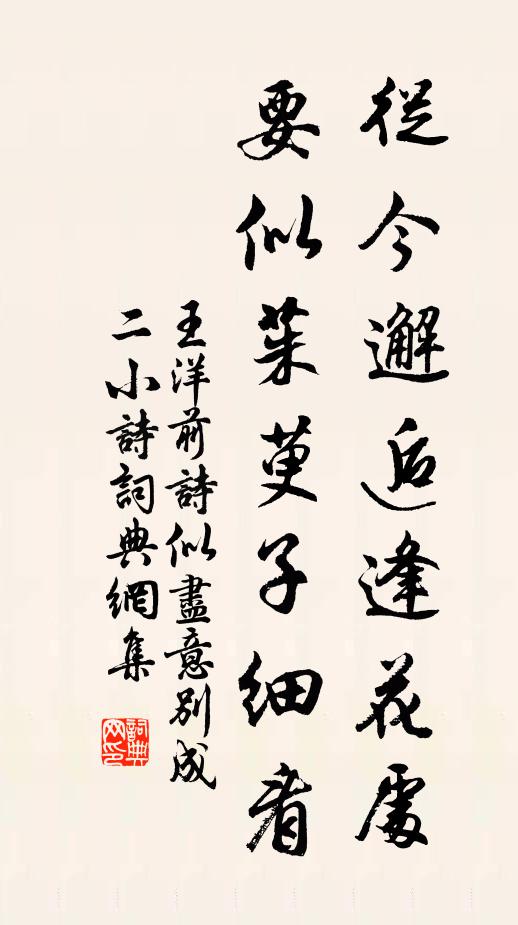 從今邂逅逢花處
要似茱萸子細看
王洋前詩似盡意別成
二小詩詞典網集
詞典網印